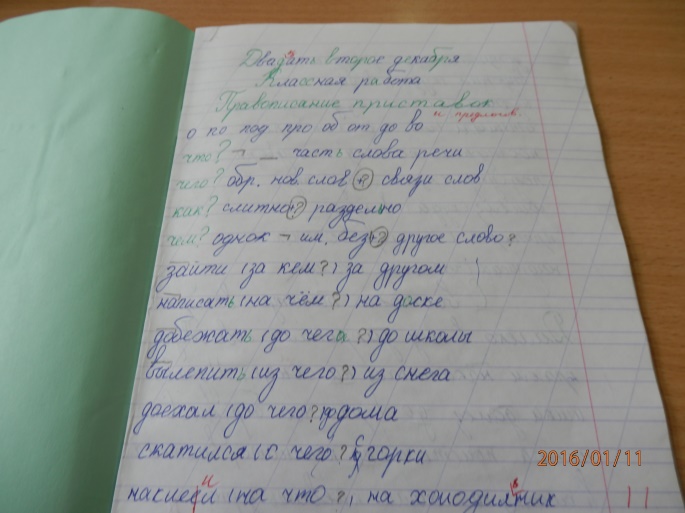 Двадцать второе декабря
Классная работа
Правописание приставок
и предлогов.
о по под про об от до во
что? ¬ _ часть слова речи
чего? обр. нов. слов связи слов
как? слитно раздельно
чем? однок ¬ им. без другое слово?
зайти (за кем?) за другом
написать (на чём?) на доске
добежать (до чего?) до школы
вылепить (из чего?) из снега
доехал (до чего?) до дома
скатился (с чего?) с горки
наклеил (на что?) на холодильник
2016/01/11